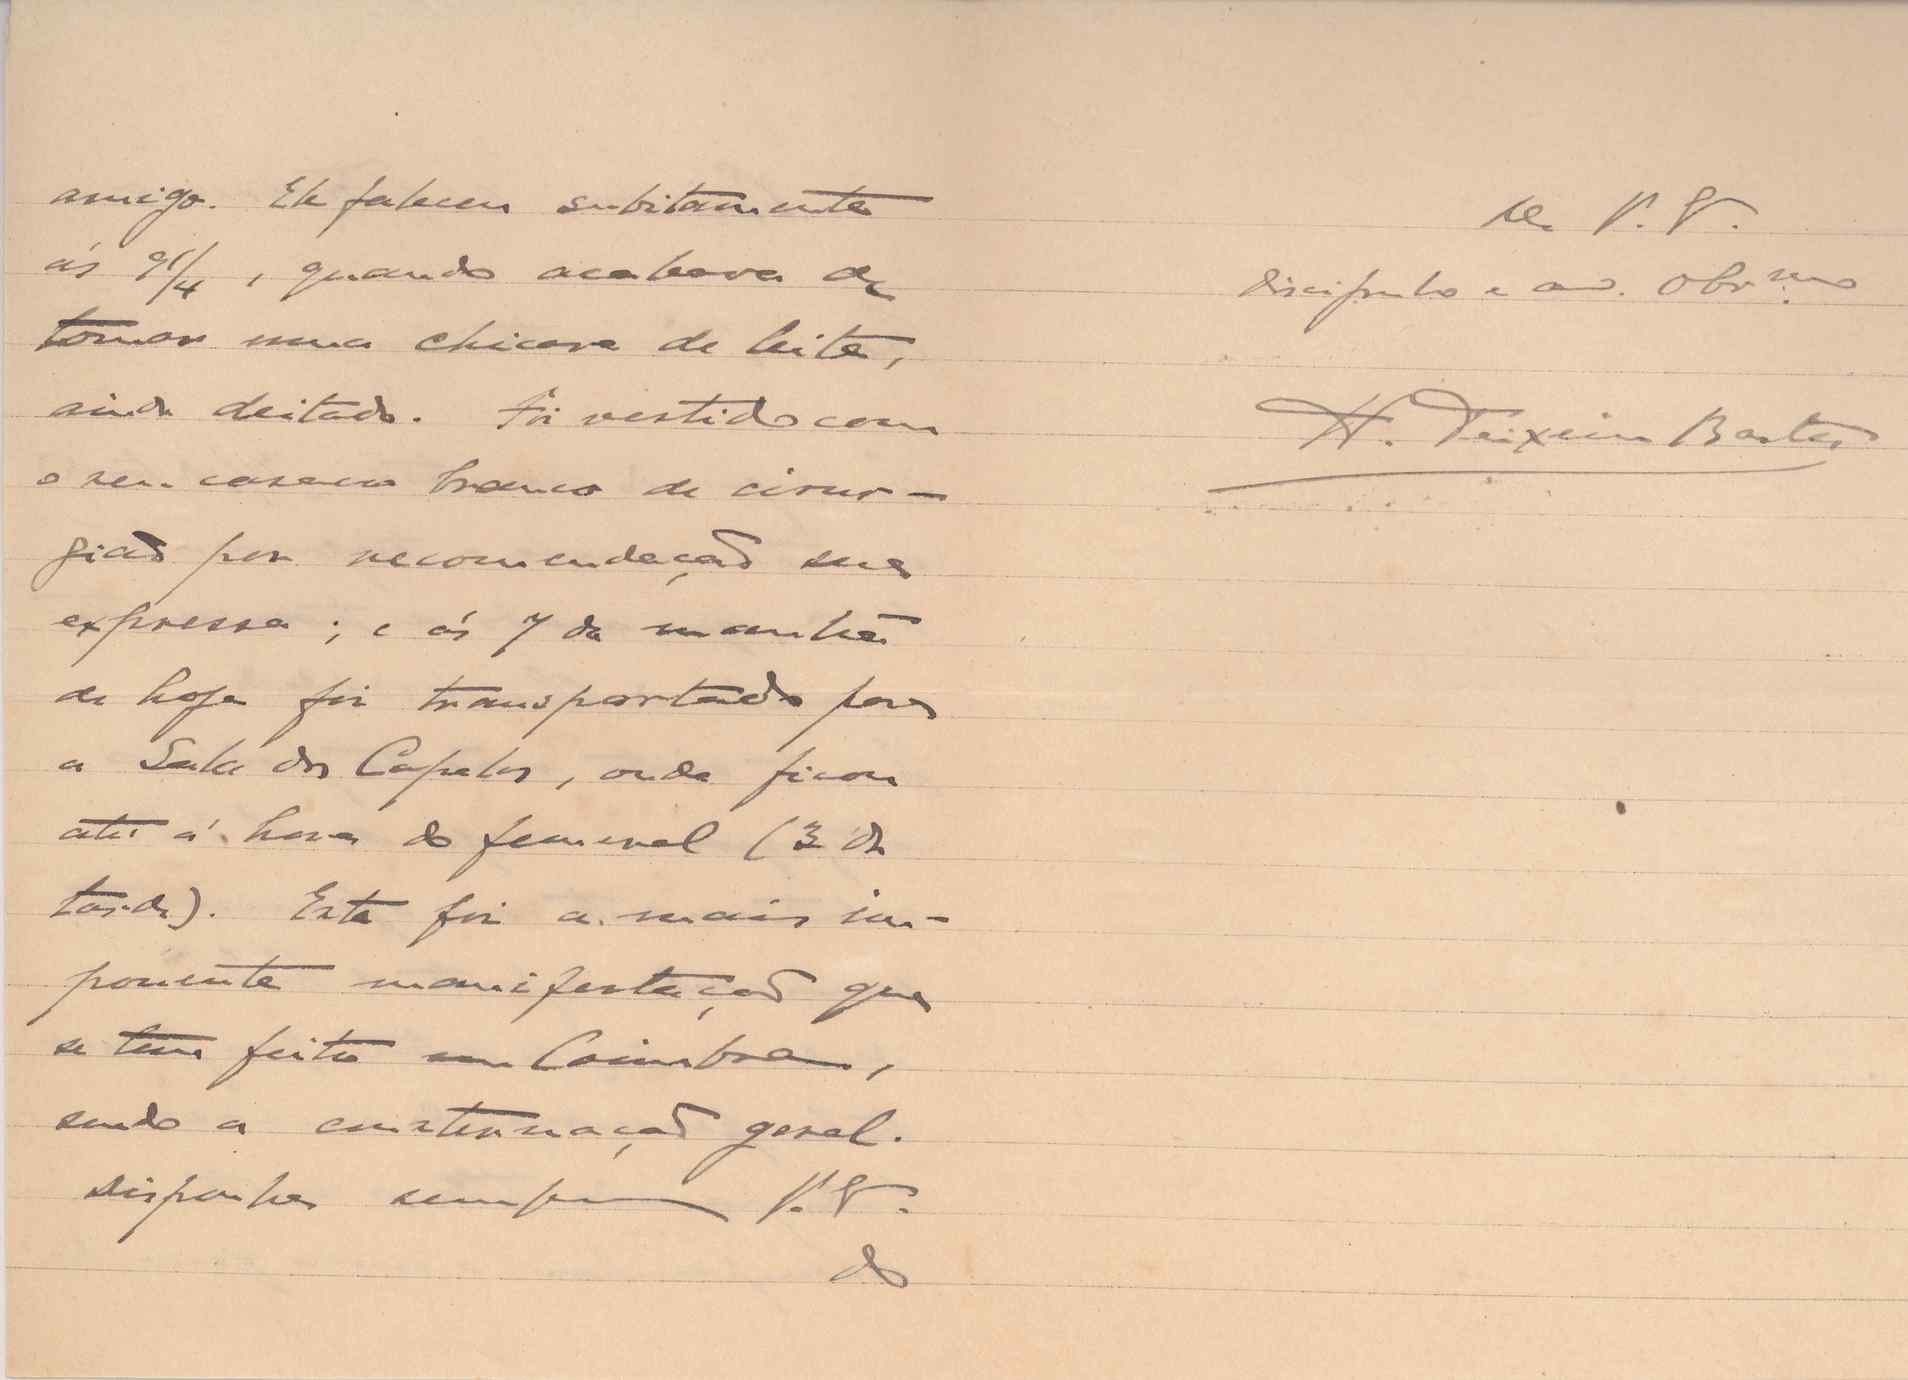 amigo. Ele faleceu subitamente
ás 9 1/4, quando acabava de
tomar uma chicara de leite,
ainda deitado. Foi vestido com
o seu casaco branco de cirur-
gião por recomendação sua
expressa; e ás 7 da manhã
de hoje foi transportado para
a Sala dos Capelos, onde ficou
até á hora do funeral (3 da
tarde). Esta foi a mais im-
ponente manifestação que
se tem feito em Coimbra,
sendo a consternação geral.
Disponha sempre V. Exª.
do
De V. Exª.
discipulo e amo. obrmo
H. Teixeira Bastos